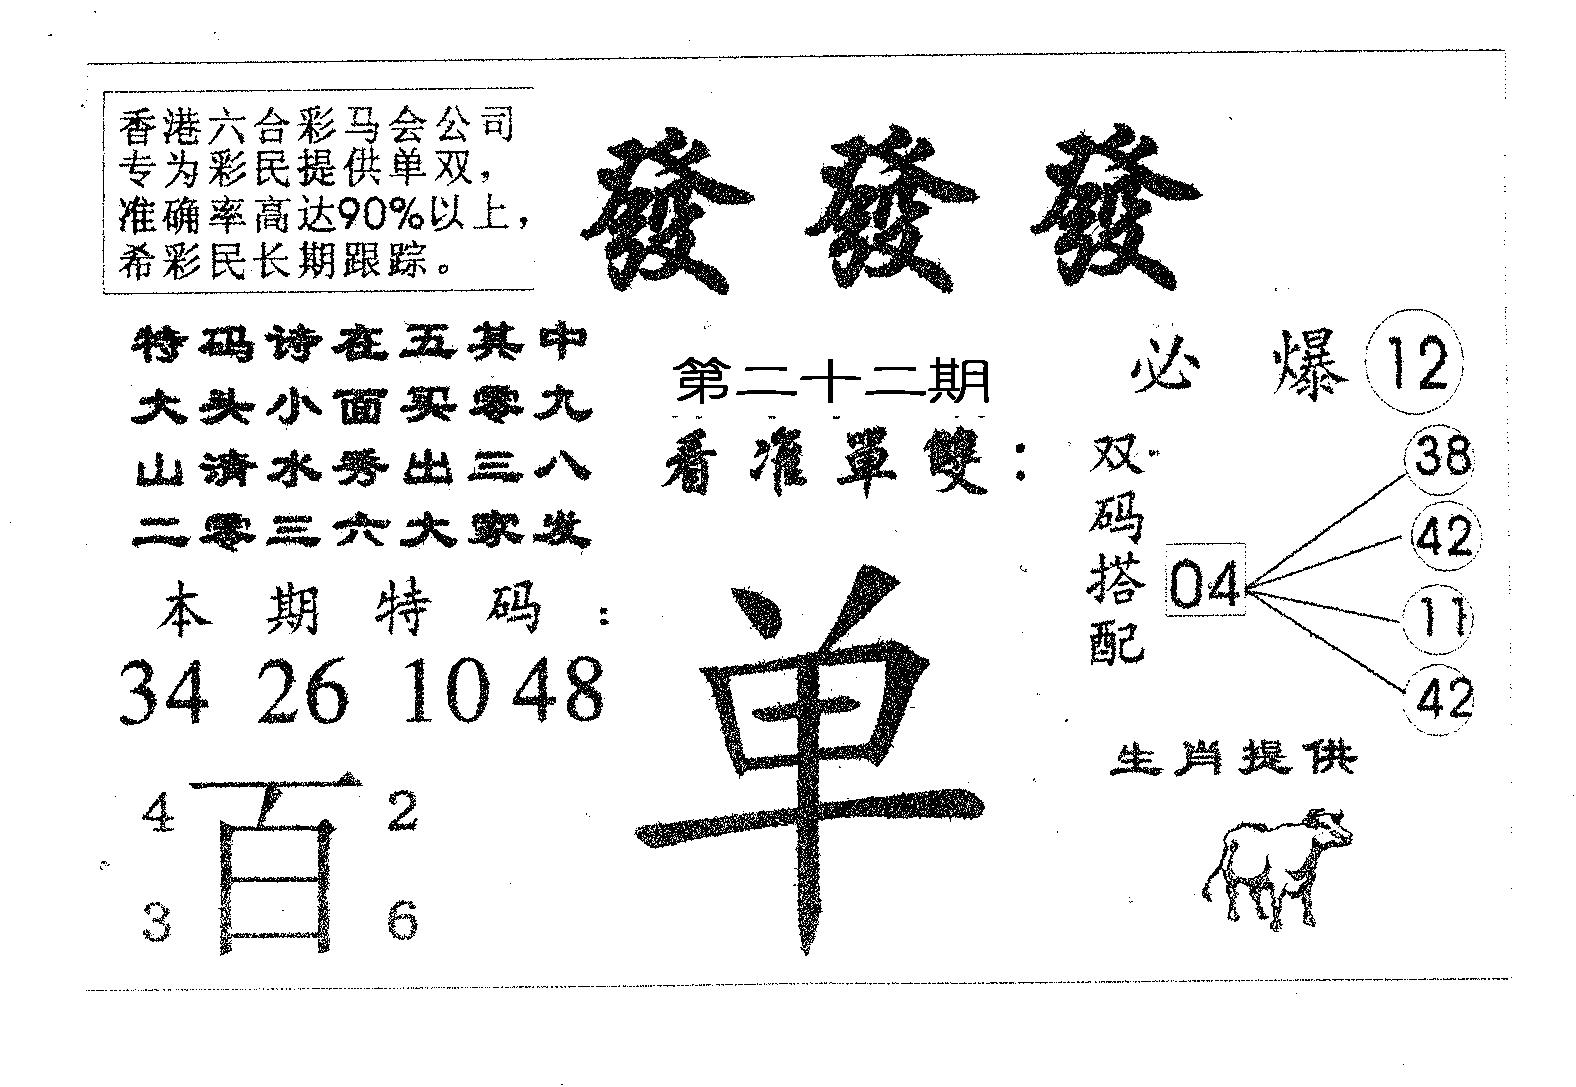 香港六合彩马会公司
专为彩民提供单双，
准确率高达90%以上，
希彩民长期跟踪。
發發發
特码诗在五其中
大头小面买零九
山清水秀出三八
二零三六大家发
本期特码：
34 26 10 48
4 百 2
3 6
第二十二期
看准單雙：
单
必爆 12
双码搭配
04
38
42
11
42
生肖提供